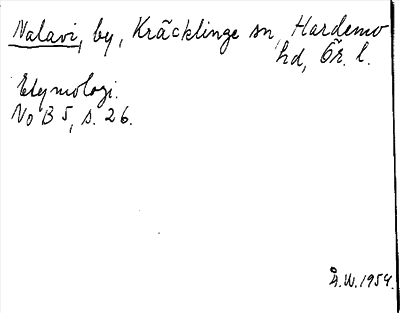 Nalavi, by, Kräcklinge sn, Hardemo
hd, Ör. l.
Etymologi.
NoB 5, s. 26.
Å.W. 1954.